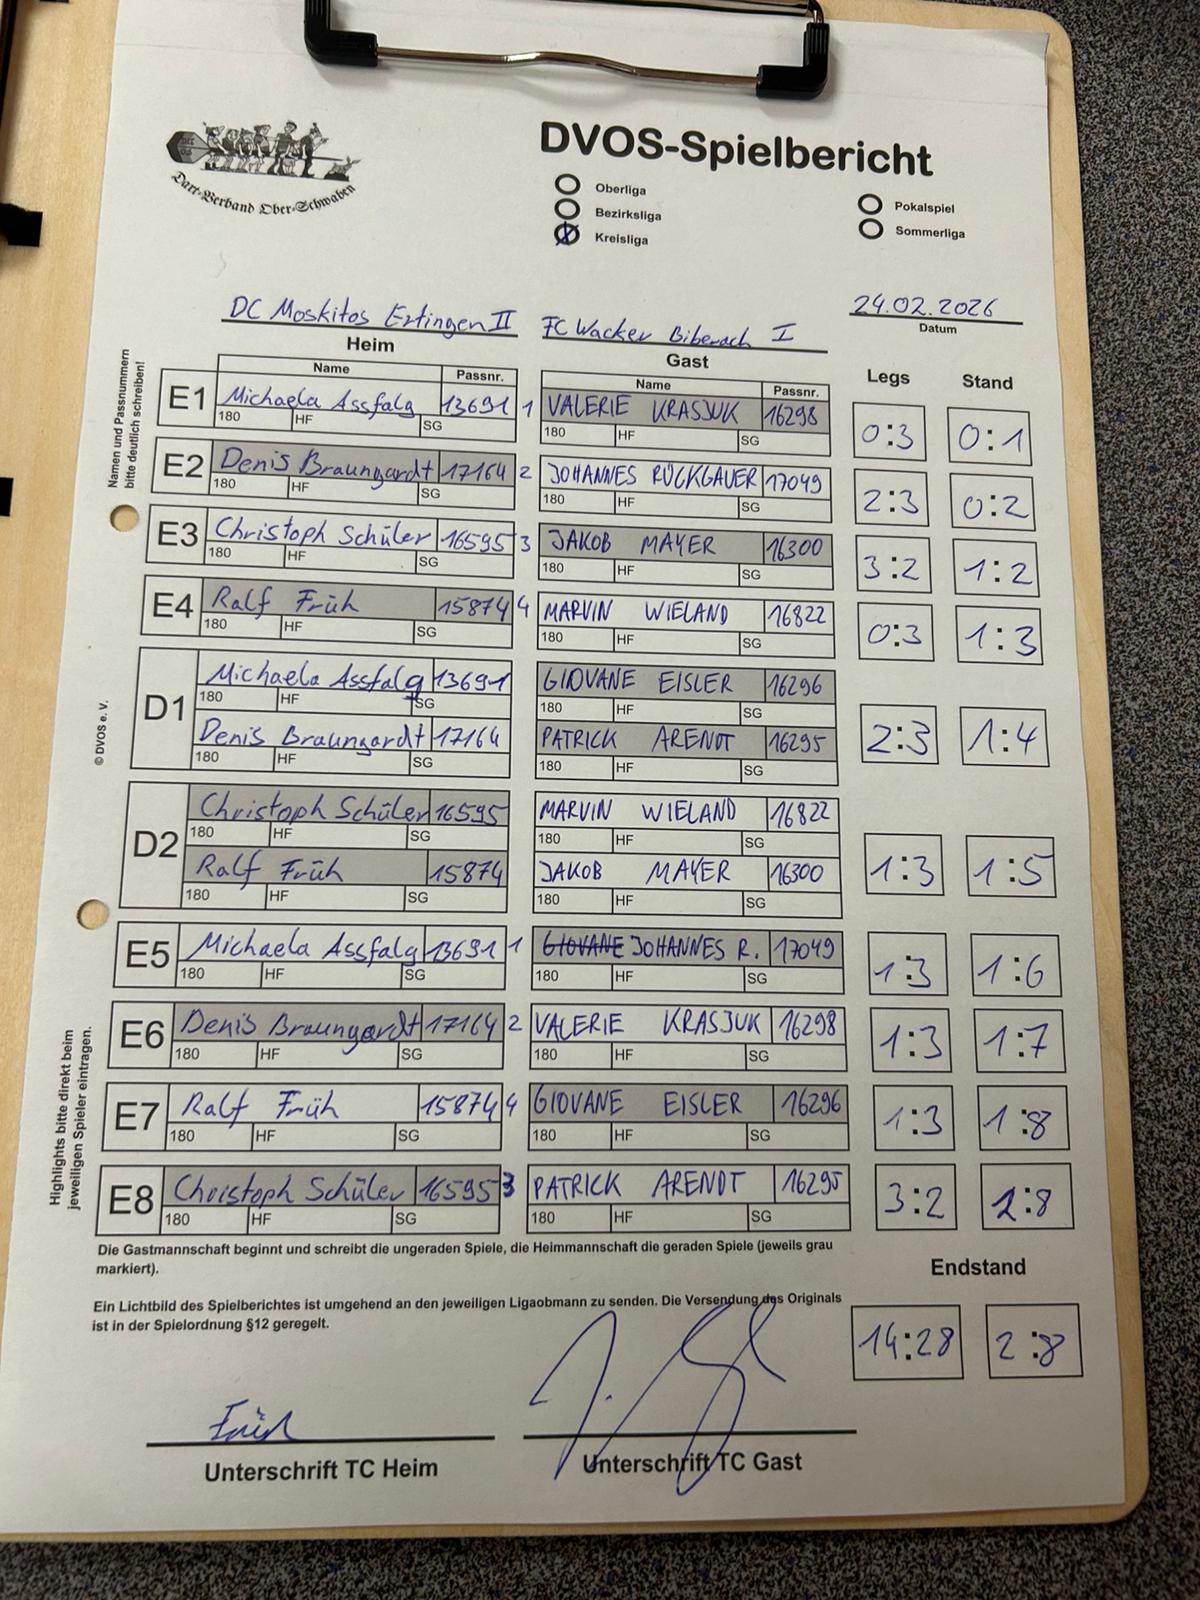 Dart-Verband Ober-Schwaben
DVOS-Spielbericht
Oberliga
Bezirksliga
Kreisliga
Pokalspiel
Sommerliga
DC Moskitos Ertingen II
FC Wacker Biberach I
24.02.2026
Heim
Gast
Datum
Namen und Passnummern
bitte deutlich schreiben!
Name Passnr.
Name Passnr.
Legs Stand
E1 Michaela Assfalg 13691 1 VALERIE KRASJUK 16298 0:3 0:1
180 HF SG 180 HF SG
E2 Denis Braungardt 17164 2 JOHANNES RÜCKGAUER 17049 2:3 0:2
180 HF SG 180 HF SG
E3 Christoph Schüler 16595 3 JAKOB MAYER 16300 3:2 1:2
180 HF SG 180 HF SG
E4 Ralf Früh 15874 4 MARVIN WIELAND 16822 0:3 1:3
180 HF SG 180 HF SG
© DVOS e. V.
D1 Michaela Assfalg 13691 GIOVANE EISLER 16296 2:3 1:4
180 HF SG 180 HF SG
Denis Braungardt 17164 PATRICK ARENDT 16295
180 HF SG 180 HF SG
D2 Christoph Schüler 16595 MARVIN WIELAND 16822 1:3 1:5
180 HF SG 180 HF SG
Ralf Früh 15874 JAKOB MAYER 16300
180 HF SG 180 HF SG
E5 Michaela Assfalg 13691 1 GIOVANE JOHANNES R. 17049 1:3 1:6
180 HF SG 180 HF SG
E6 Denis Braungardt 17164 2 VALERIE KRASJUK 16298 1:3 1:7
180 HF SG 180 HF SG
E7 Ralf Früh 15874 4 GIOVANE EISLER 16296 1:3 1:8
180 HF SG 180 HF SG
E8 Christoph Schüler 16595 3 PATRICK ARENDT 16295 3:2 2:8
180 HF SG 180 HF SG
Highlights bitte direkt beim
jeweiligen Spieler eintragen.
Die Gastmannschaft beginnt und schreibt die ungeraden Spiele, die Heimmannschaft die geraden Spiele (jeweils grau
markiert).
Endstand
Ein Lichtbild des Spielberichtes ist umgehend an den jeweiligen Ligaobmann zu senden. Die Versendung des Originals
ist in der Spielordnung §12 geregelt.
14:28 2:8
Früh
Unterschrift TC Heim
Unterschrift TC Gast